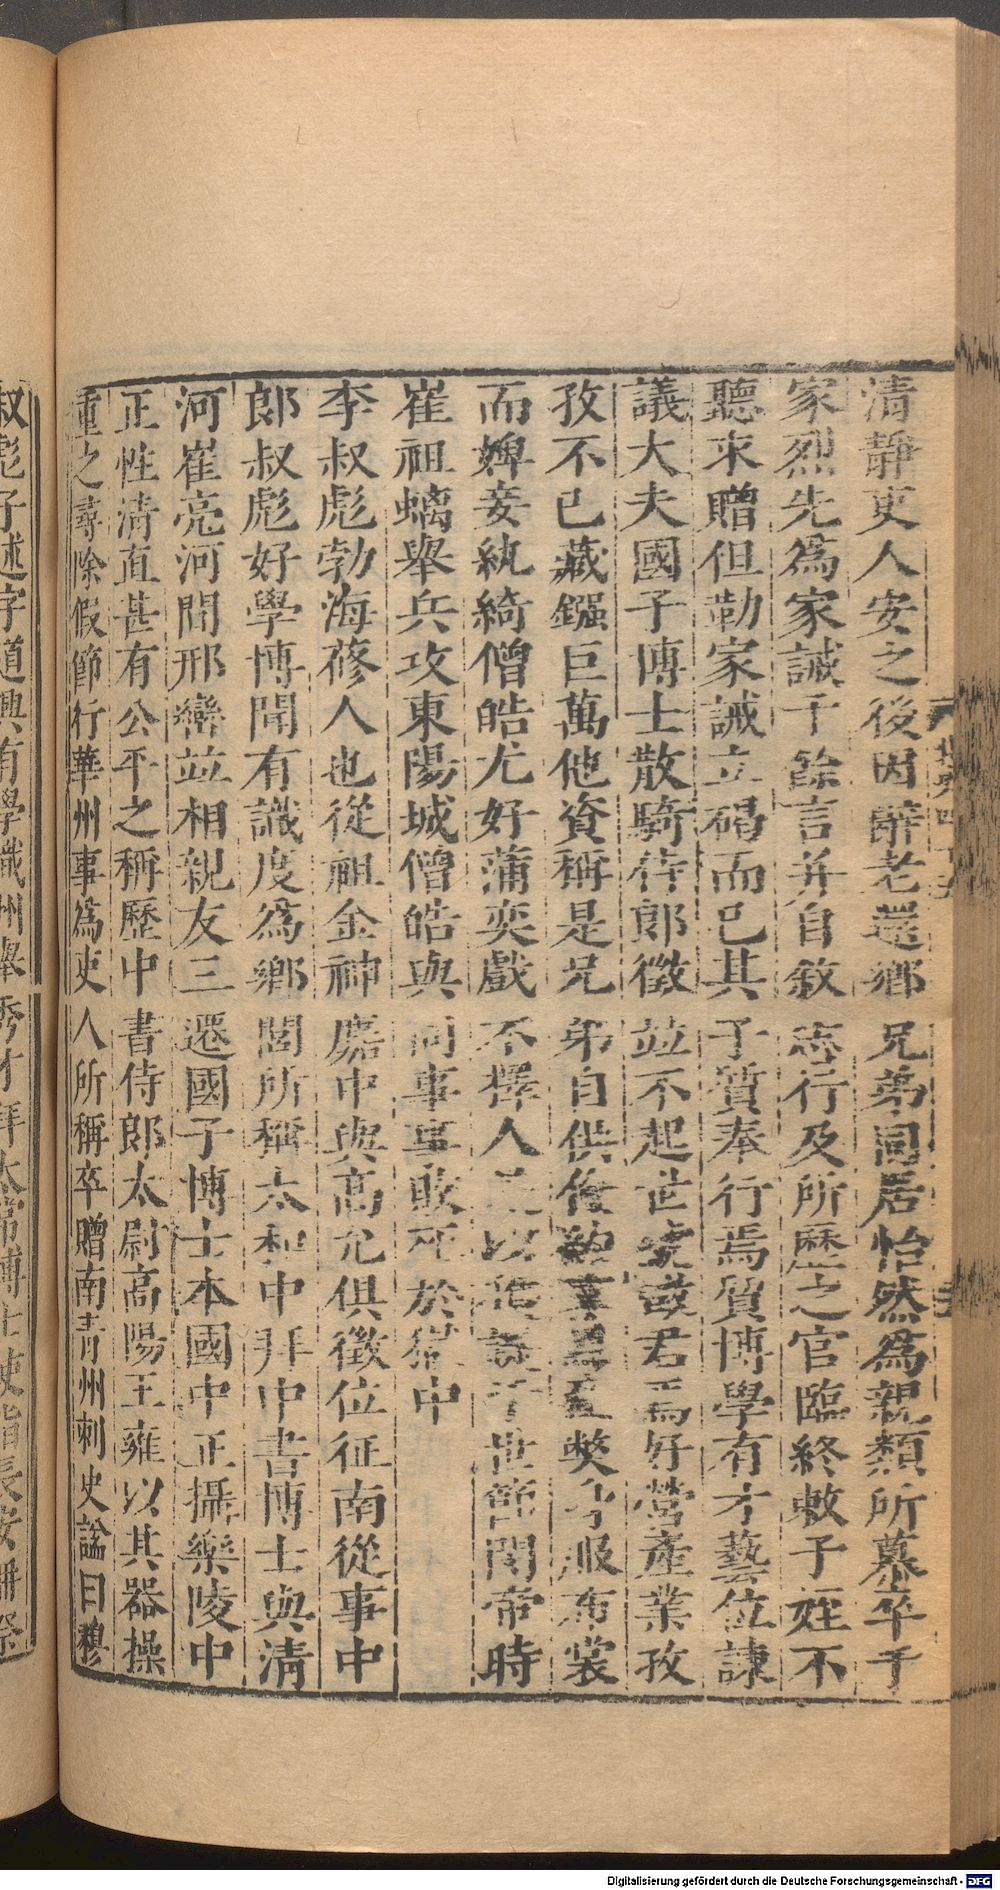 清靜吏人安之後因辭老還鄉兄弟同居怡然爲親類所慕卒于
家烈先爲家誡千餘言并自敘志行及所歷之官臨終敕子姪不
聽求贈但勒家誡立碣而已其子質奉行焉質博學有才藝位諫
議大夫國子博士散騎侍郎徵並不起世號徵君焉好營產業孜
孜不已藏鏹巨萬他資稱是兄弟自供儉車馬弊身服布裳
而婢妾紈綺僧皓尤好蒲奕戲不擇人是以譏于世節閔帝時
崔祖螭舉兵攻東陽城僧皓與同事事敗死於獄中
李叔彪勃海蓨人也從祖金神䴥中與高允俱徵位征南從事中
郎叔彪好學博聞有識度爲鄉閭所稱太和中拜中書博士與清
河崔亮河間邢巒並相親友三遷國子博士本國中正攝樂陵中
正性清直甚有公平之稱歷中書侍郎太尉高陽王雍以其器操
重之尋除假節行華州事爲吏人所稱卒贈南青州刺史諡曰穆
叔彪子述字道興有學識州舉秀才拜太常博士使詣長安冊祭
Digitalisierung gefördert durch die Deutsche Forschungsgemeinschaft - DFG